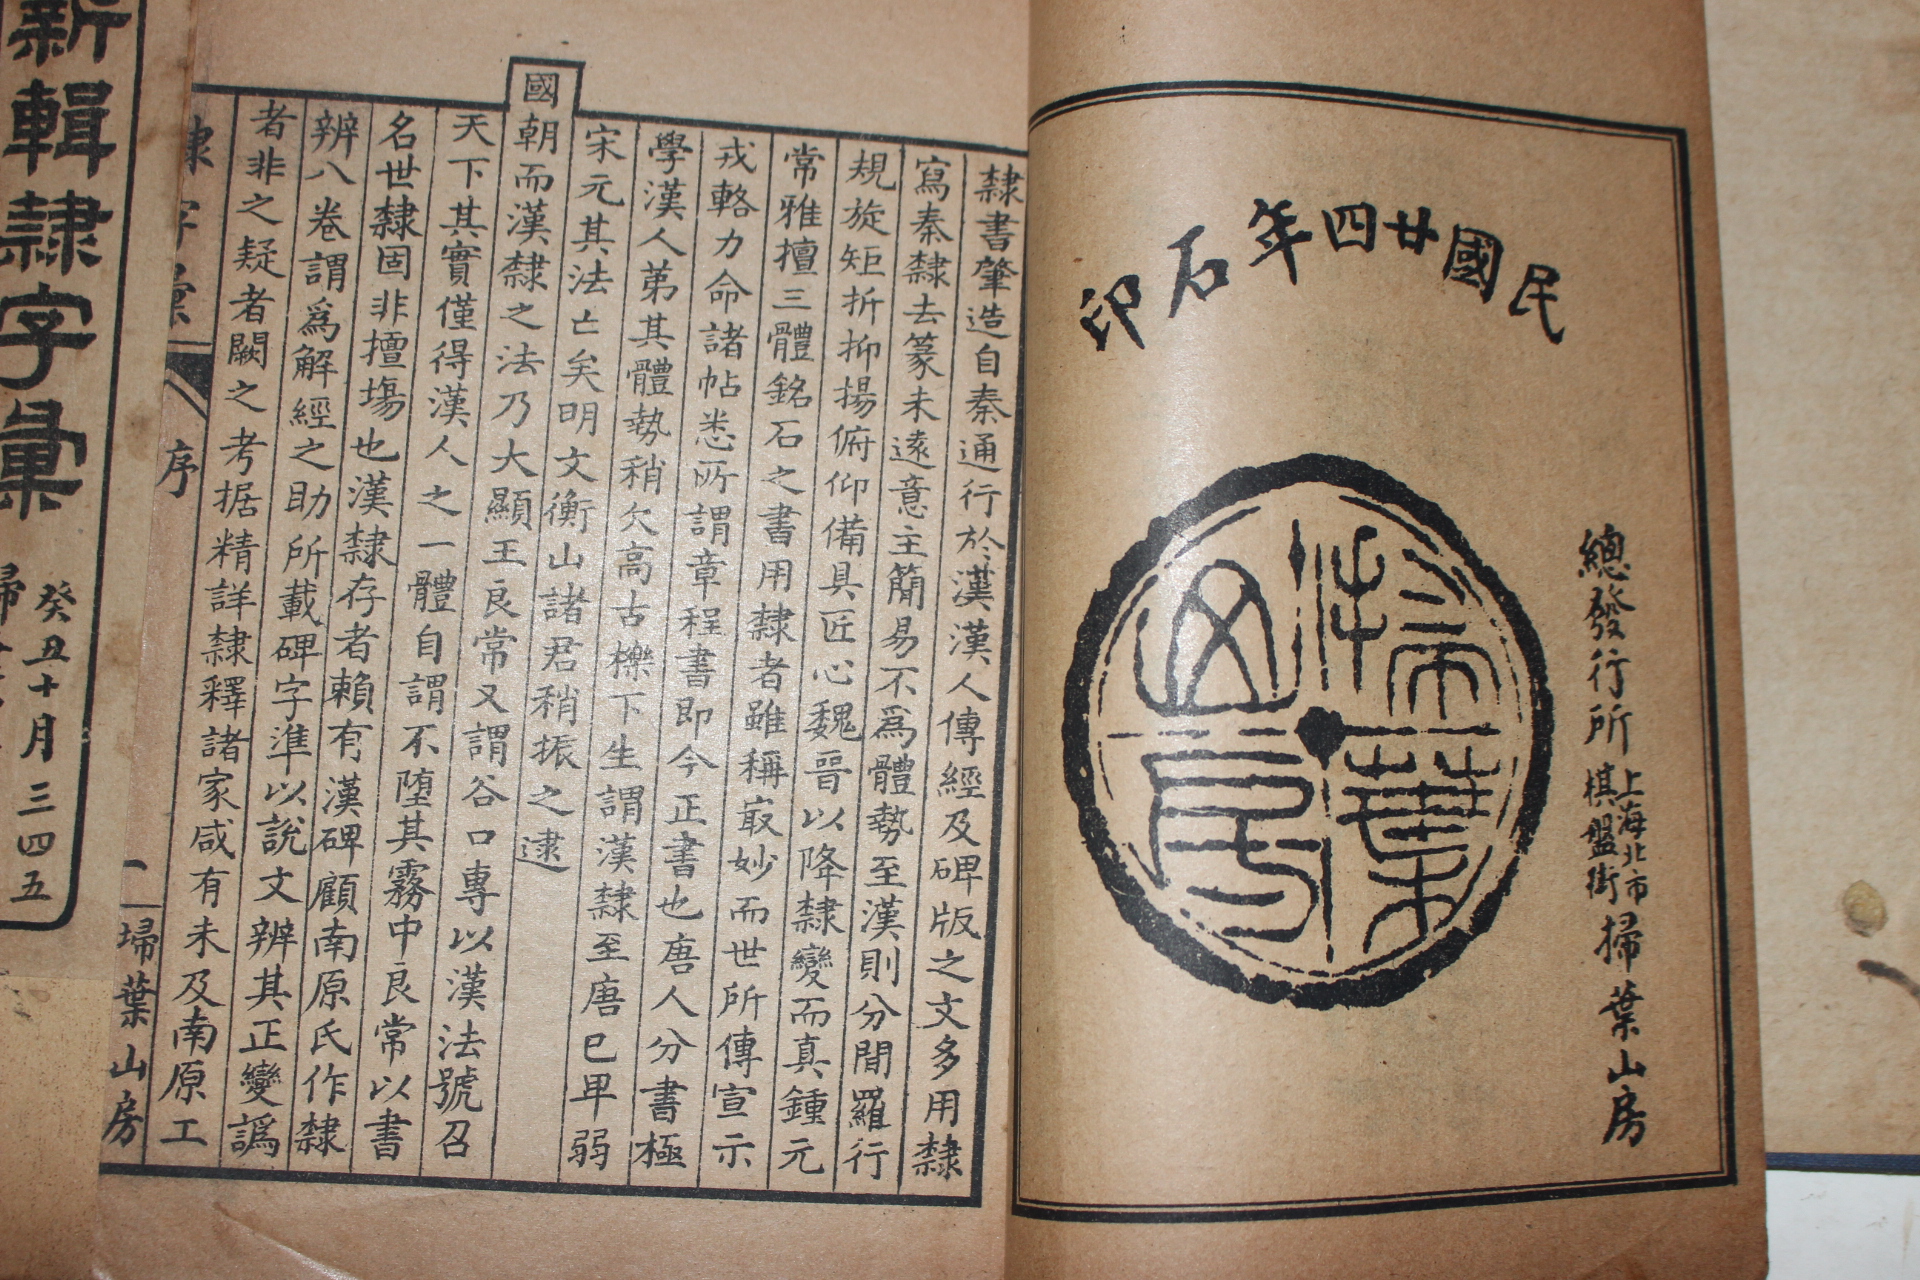 民國廿四年石印
掃葉山房
總發行所
上海北市
棋盤街
掃葉山房
隸書肇造自秦通行於漢漢人傳經及碑版之文多用隸
寫秦隸去篆未遠意主簡易不為體勢至漢則分間羅行
規旋矩折抑揚俯仰備具匠心魏晉以降隸變而真鍾元
常雅擅三體銘石之書用隸者雖稱㝡妙而世所傳宣示
戎輅力命諸帖悉所謂章程書即今正書也唐人分書極
學漢人苐其體勢稍欠高古櫟下生謂漢隸至唐已卑弱
宋元其法亡矣明文衡山諸君稍振之逮
國朝而漢隸之法乃大顯王良常又謂谷口專以漢法號召
天下其實僅得漢人之一體自謂不墮其霧中良常以書
名世隸固非擅塲也漢隸存者賴有漢碑顧南原氏作隸
辨八卷謂為解經之助所載碑字準以說文辨其正變譌
者非之疑者闕之考据精詳隸釋諸家咸有未及南原工
隸字彙
序
一
埽葉山房
新輯隸字彙
癸丑十月三四五